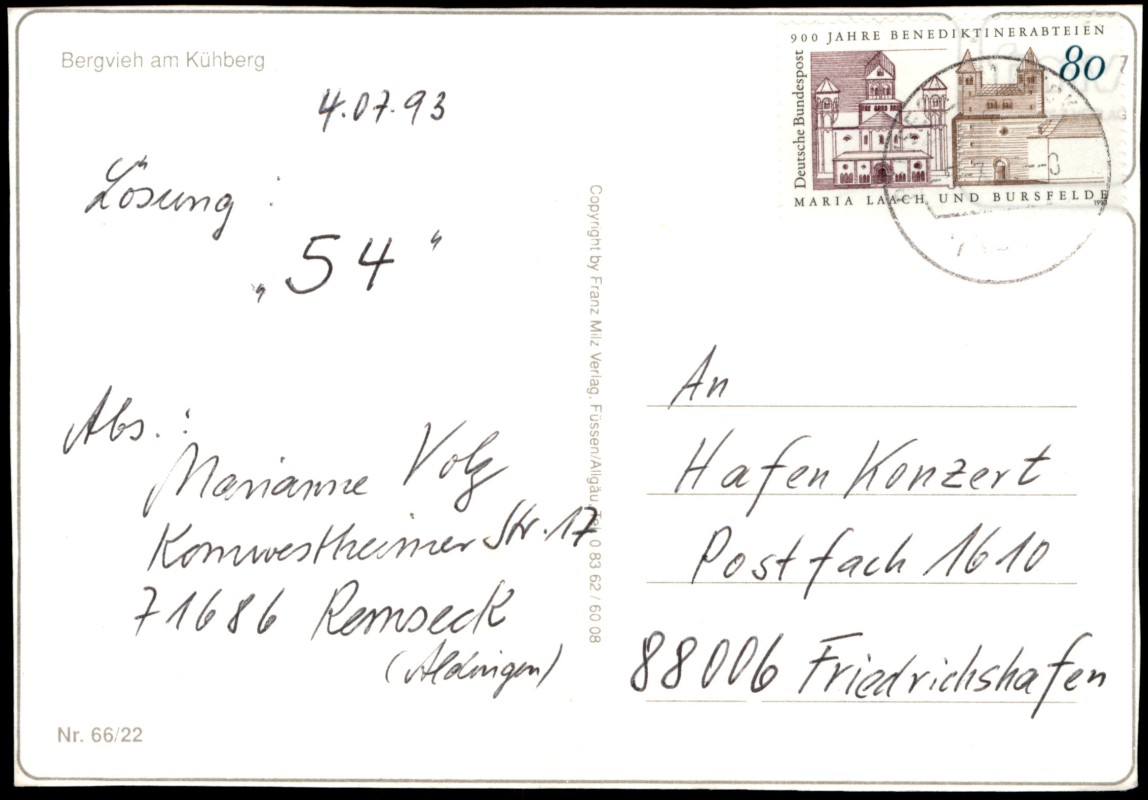 Bergvieh am Kühberg
4.07.93
Lösung :
„54"
Abs. :
Marianne Volz
Kornwestheimer Str. 17
71686 Remseck
(Aldingen)
Nr. 66/22
Copyright by Franz Milz Verlag, Füssen/Allgäu, Tel. 0 83 62 / 60 08
900 JAHRE BENEDIKTINERABTEIEN
80
Deutsche Bundespost
MARIA LAACH UND BURSFELDE
1993
An
Hafen Konzert
Postfach 1610
88006 Friedrichshafen